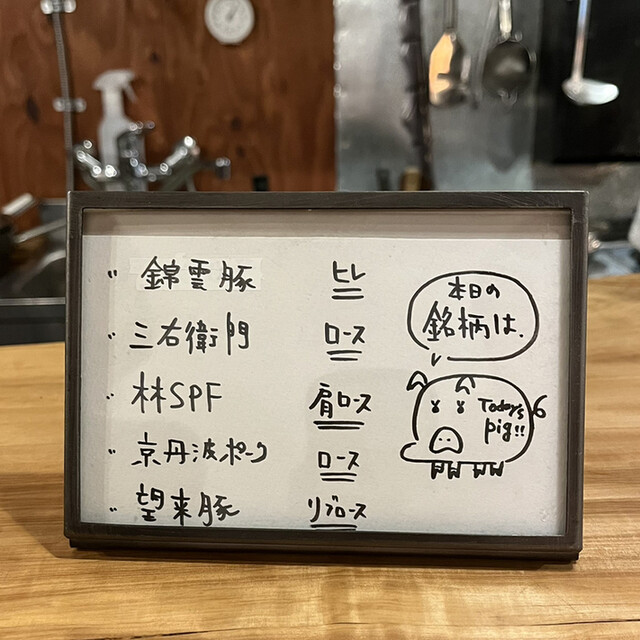 錦雲豚 ヒレ
三右衛門 ロース
林SPF 肩ロース
京丹波ポーク ロース
望来豚 リブロース
本日の
銘柄は、
Today's
pig!!